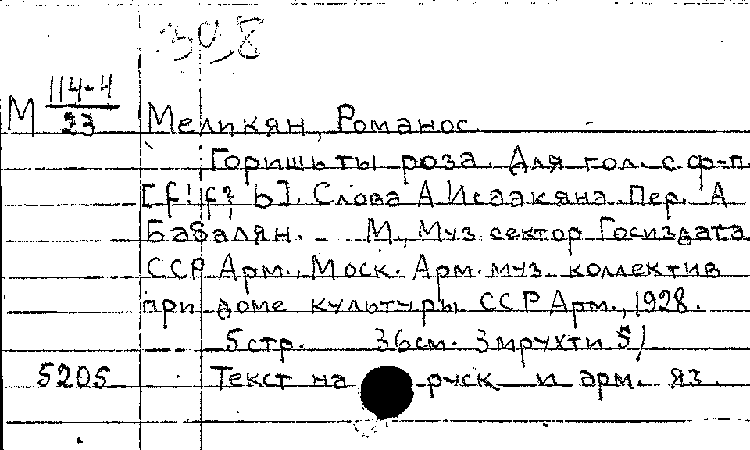 308
М 114-4/23 Меликян, Романос.
Горишь ты роза. Для гол. с ф-п.
[f! f? b]. Слова А Исаакяна. Пер. А
Бабалян. - М., Муз. сектор Госиздата
ССР Арм., Моск. Арм. муз. коллектив
при доме культуры ССР Арм., 1928.
5 стр. 36 см. Змрухти 5/
5205 Текст на русск и арм. яз.